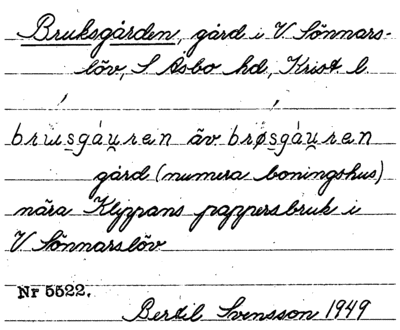 Bruksgården, gård i V Sönnars-
löv, S Åsbo hd, Krist. l.
brɯsgáu̯ren äv brøsgáu̯ren
gård (numera boningshus)
nära Klippans pappersbruk i
V Sönnarslöv
Nr 5522.
Bertil Svensson 1949